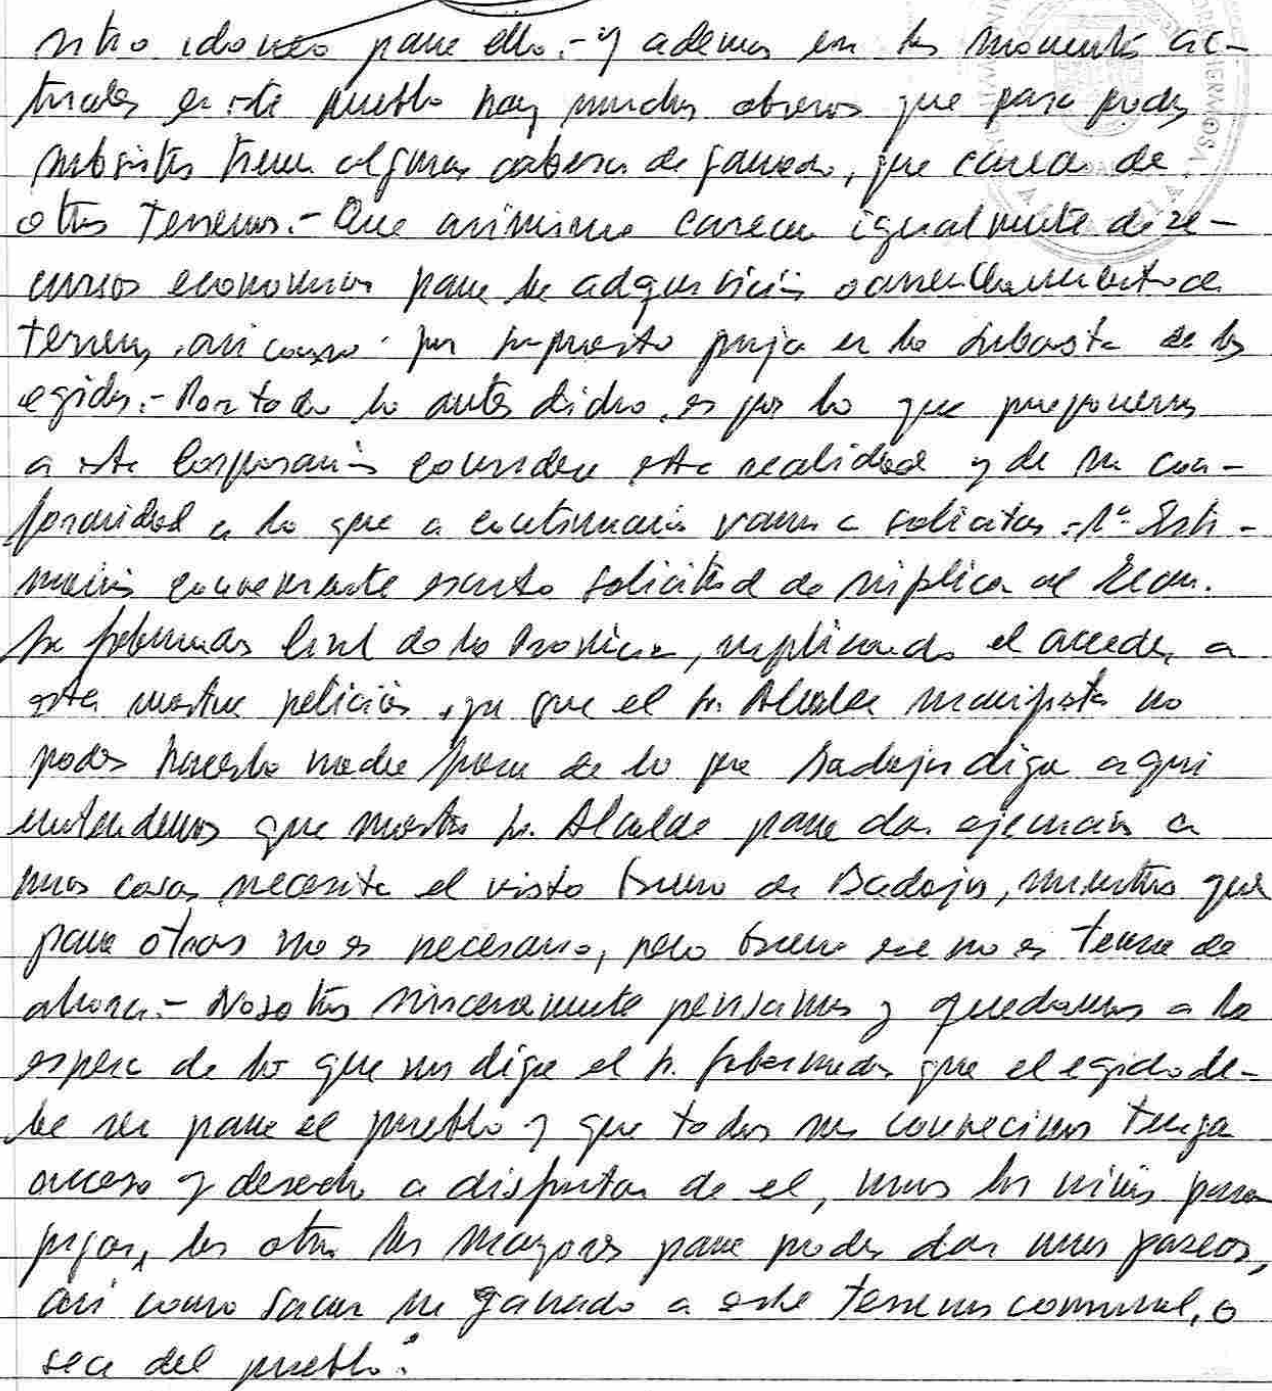 sitio idoneo para ello.- Y ademas en los momentos ac-
tuales en este pueblo hay muchos obreros que para poder
subsistir tienen algunas cabezas de ganado, que carecen de
otros terrenos.- Que asimismo carecen igualmente de re-
cursos economicos para la adquisición o arrendamiento de
terrenos, asi como por supuesto puja en la subasta de los
egidos.- Por todo lo antes dicho, es por lo que proponemos
a esta Corporación considere esta realidad y de su con-
formidad a lo que a continuación vamos a solicitar.-1ª- Esti-
mación conveniente escrito solicitud de suplica al Excm.
Sr. Gobernador Civil de la Provincia, suplicando el acceder a
esta nuestra petición, ya que el Sr. Alcalde manifiesta no
poder hacerlo nadie pasa de lo que Badajoz diga aqui
entendemos que nuestro Sr. Alcalde para dar ejecución a
unas cosas necesita el visto bueno de Badajoz, mientras que
para otras no es necesario, pero bueno ese no es tema de
ahora.- Nosotros sinceramente pensamos y quedamos a la
espera de lo que nos diga el Sr. Gobernador que el egido de-
be ser para el pueblo y que todos sus convecinos tenga
acceso y derecho a disfrutar de el, unos los niños para
jugar, los otros los mayores para poder dar unos paseos,
asi como sacar su ganado a este terrenos comunal, o
sea del pueblo.